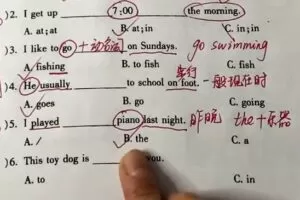 )2. I get up ____ 7:00 ____ the morning.
A. at; at B. at; in C. in; in
)3. I like to go +动名词 on Sundays. go swimming
A. fishing B. to fish C. fish
)4. He usually ____ to school on foot. 步行 一般现在时
A. goes B. go C. going
)5. I played ____ piano last night. 昨晚 the+乐器
A. / B. the C. a
)6. This toy dog is ____ you.
A. to C. in